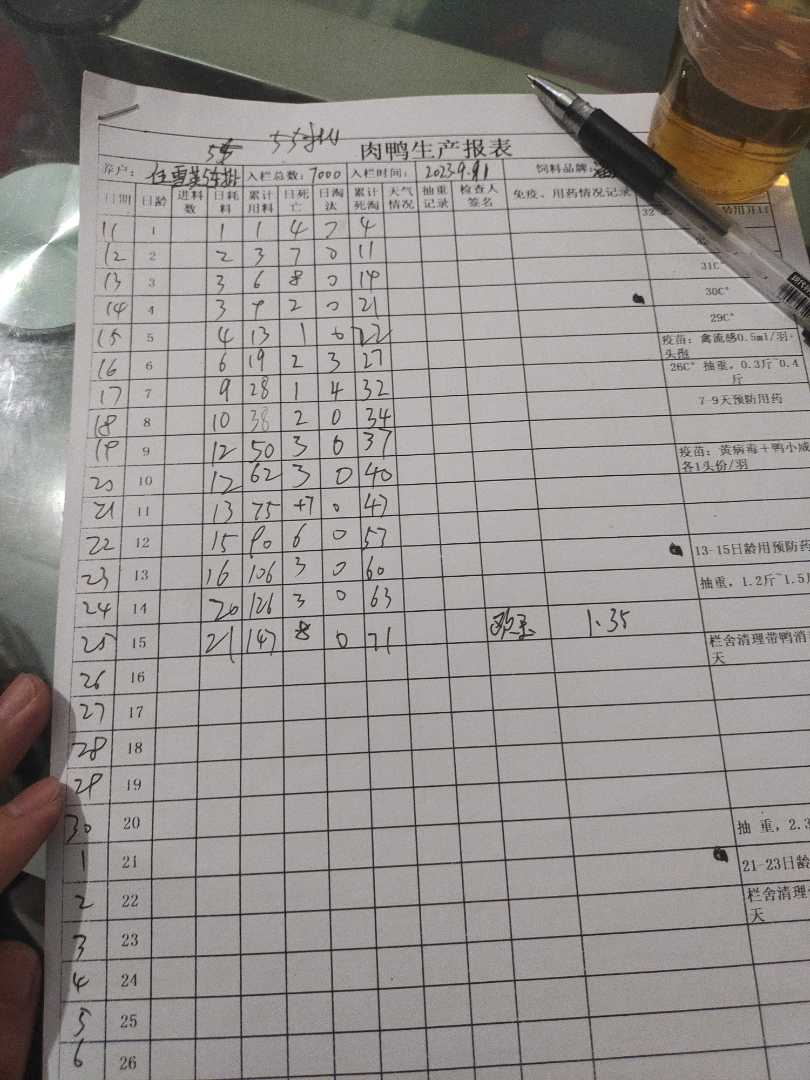 5字
肉鸭生产报表
养户： 任雪英5字 入栏总数：7000 入栏时间： 2023.9.11 饲料品牌：
日期 日龄 进料数 日耗料 累计用料 日死亡 日淘汰 累计死淘 天气情况 抽重记录 检查人签名 免疫、用药情况记录
11 1 1 1 4 4
12 2 2 3 7 0 11
31C°
13 3 3 6 8 0 19
30C°
14 4 3 9 2 0 21
29C°
15 5 4 13 1 0 22
疫苗：禽流感0.5ml/羽·
16 6 6 19 2 3 27
26C° 抽重，0.3斤~0.4斤
17 7 9 28 1 4 32
7-9天预防用药
18 8 10 38 2 0 34
19 9 12 50 3 0 37
疫苗：黄病毒＋鸭小
各1头份/羽
20 10 12 62 3 0 40
21 11 13 75 +7 0 47
22 12 15 90 6 0 53
13-15日龄用预防药
23 13 16 106 3 0 60
抽重，1.2斤~1.5
24 14 20 126 3 0 63
25 15 21 147 8 0 71 1.35
栏舍清理带鸭消
天
26 16
27 17
28 18
29 19
30 20
抽 重，2.3
1 21
21-23日龄
2 22
栏舍清理
天
3 23
4 24
5 25
6 26